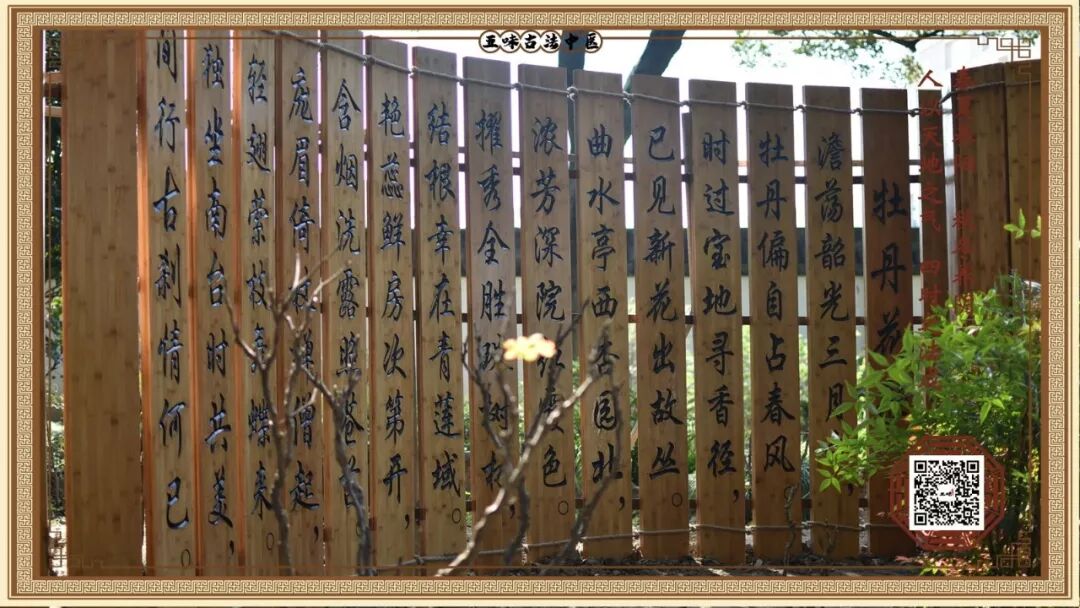 味古法中医
春夏养阳 秋冬养阴
人以天地之气 四时之法成
牡丹花
澹荡韶光三月,
牡丹偏自占春风
时过宝地寻香径,
已见新花出故丛。
曲水亭西杏园北,
浓芳深院红霞色。
擢秀全胜珠树林,
结根幸在青莲域。
艳蕊鲜房次第开,
含烟洗露照苍苔
庞眉倚杖禅僧起,
轻翅萦枝舞蝶来。
独坐南台时共美,
闲行古刹情何已。